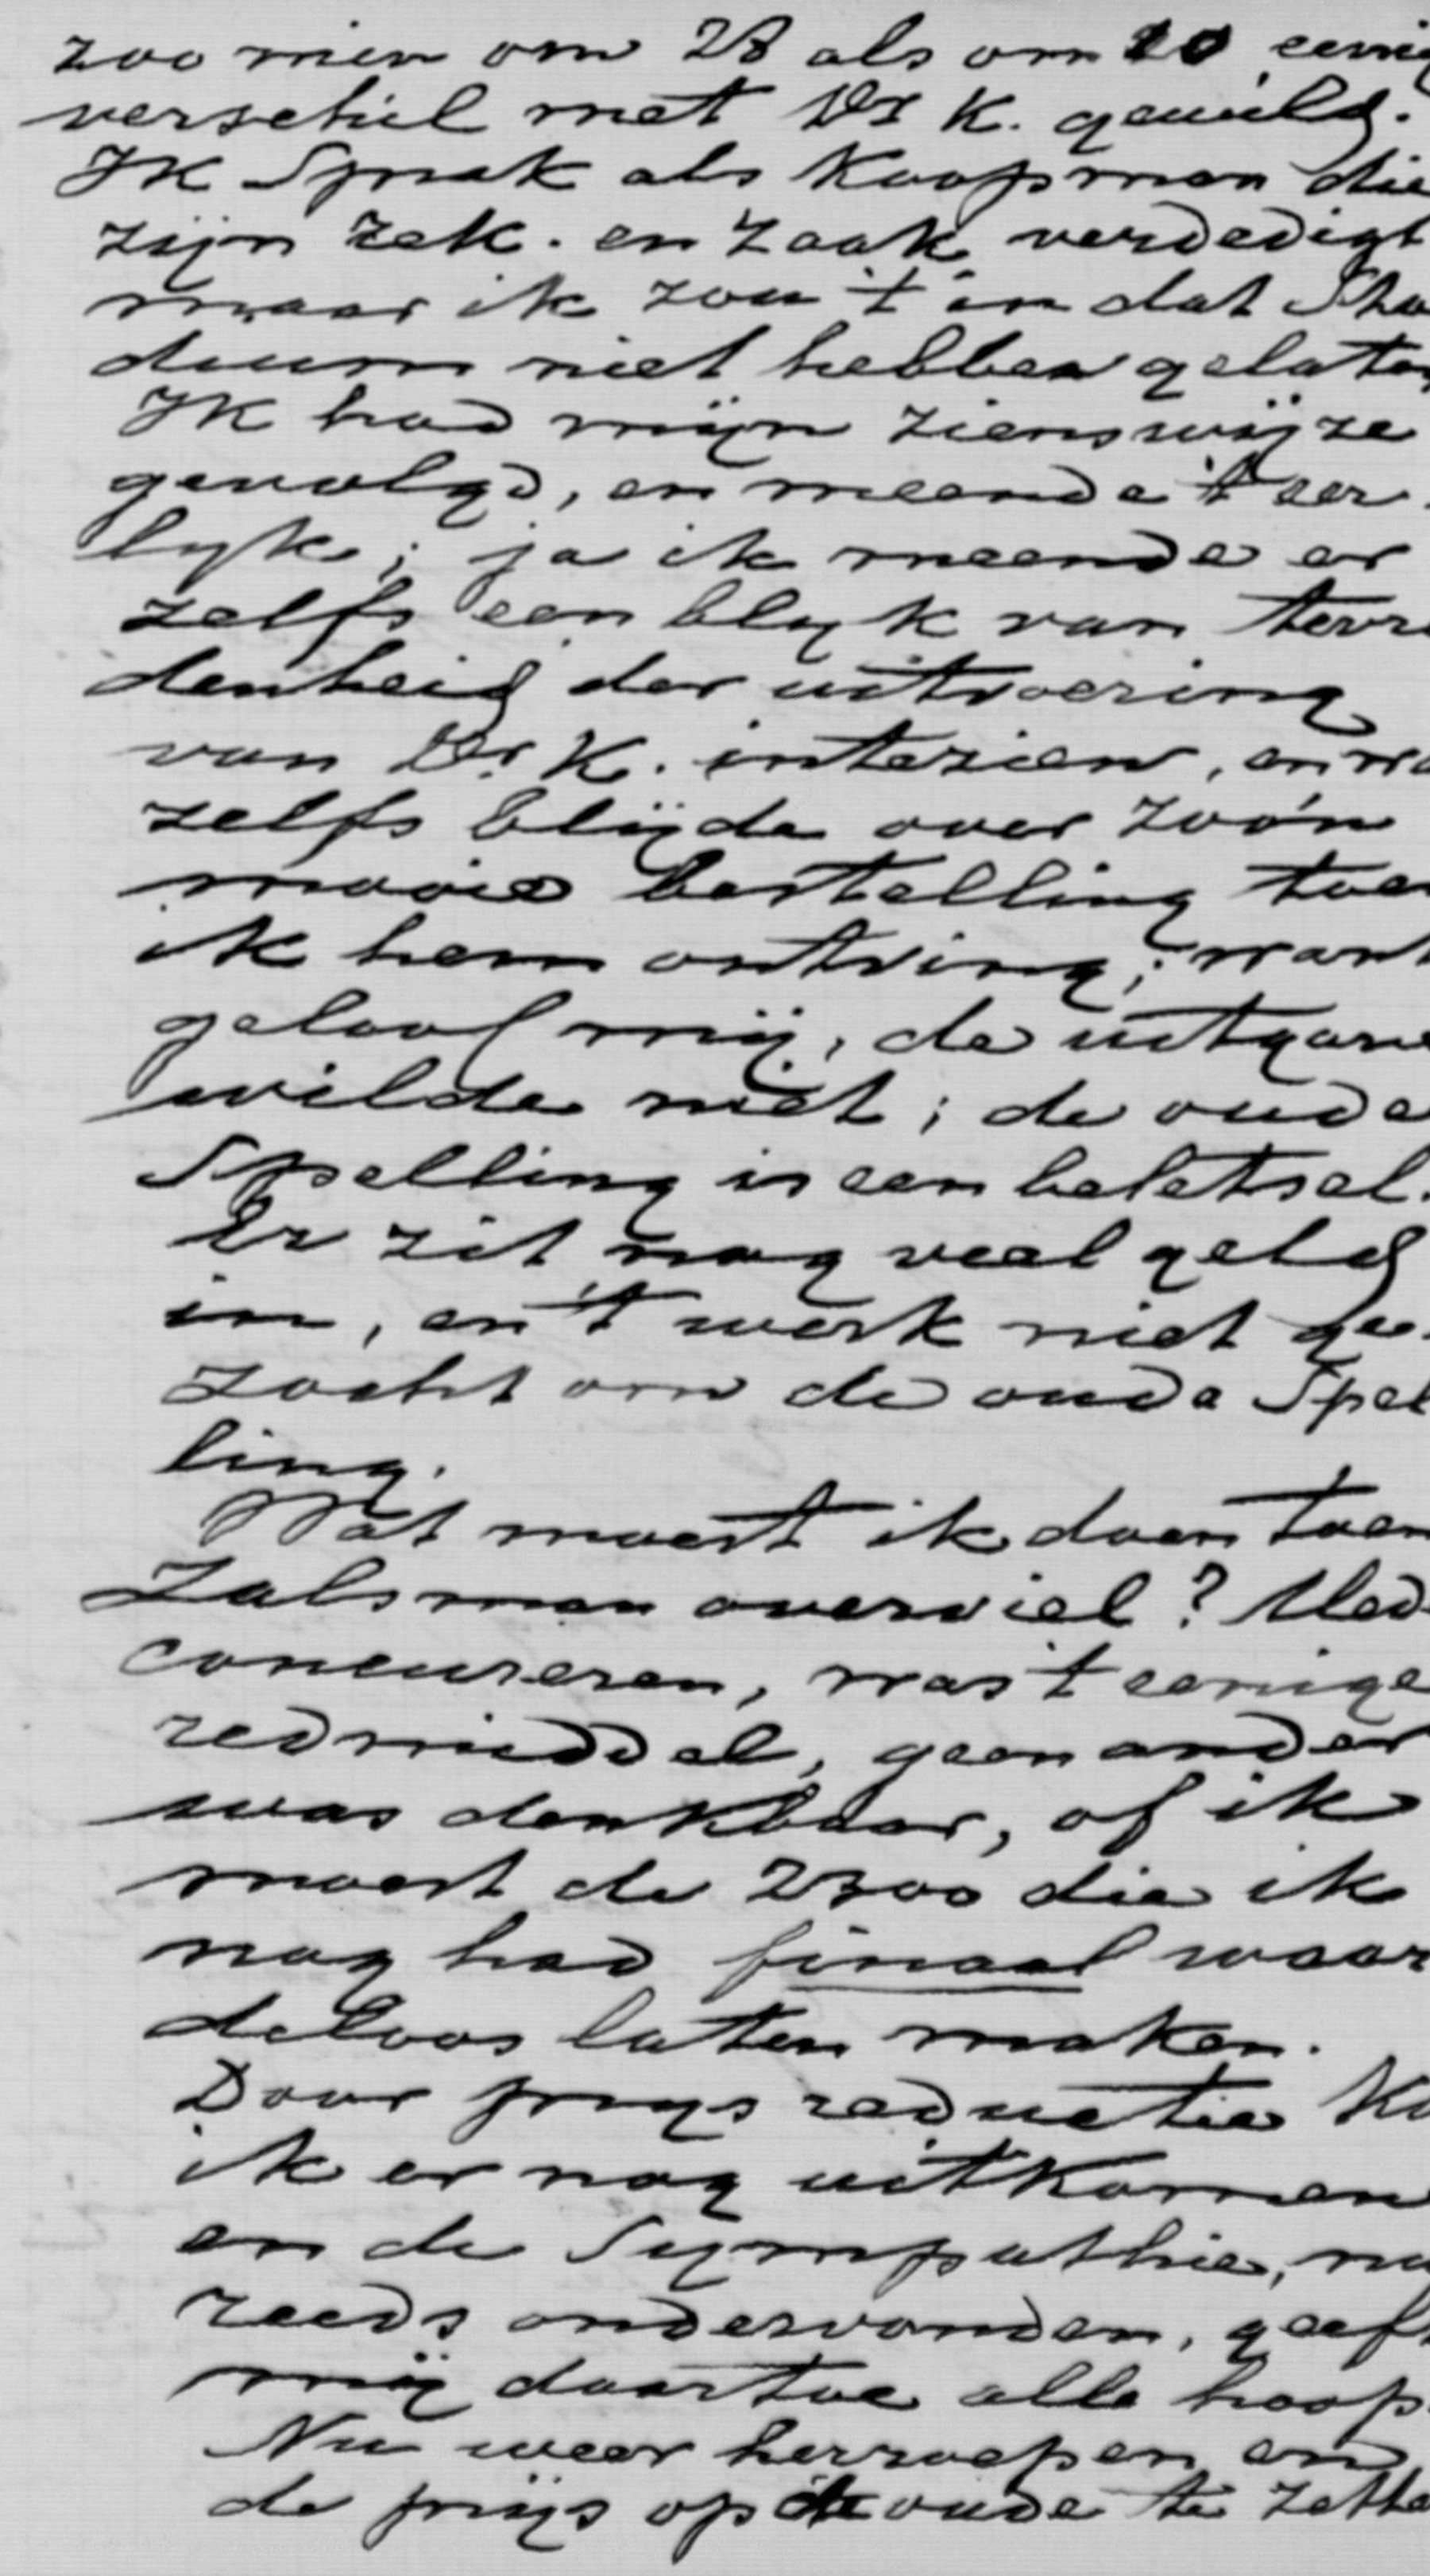 zoo min om 28 als om 20 eenig
verschil met Dr K. gewild.
Ik Sprak als Koopman die
zijn zek. en zaak verdedigt
maar ik zou 't in dat Sta
dium niet hebben gelaten
Ik had mijn zienswijze
gevolgd, en meende 't eer-
lyk; ja ik meende er
zelfs een blyk van tevre
denheid der uitvoering
van Dr. K. in te zien, en wa
zelfs blijde over zoó'n
mooie bestelling toen
ik hem ontving; want
geloof mij, de uitgave
wilde niet; de oude
Spelling is een beletsel.
Er zit nog veel geld
in, en 't werk niet ge-
zocht om de oude Spel
ling.
Wat moest ik doen toen
Zalsman overviel? Med-
concureren, was 't eenige
redmiddel, geen ander
was denkbaar, of ik
moest de 2300 die ik
nog had finaal waar
deloos laten maken.
Door prys reductie Ko
ik er nog uitkomen
en de Sympathie, nu
reeds ondervonden, geeft
mij daartoe alle hoop.
Nu weer herroepen en
de prijs op de oude te zette